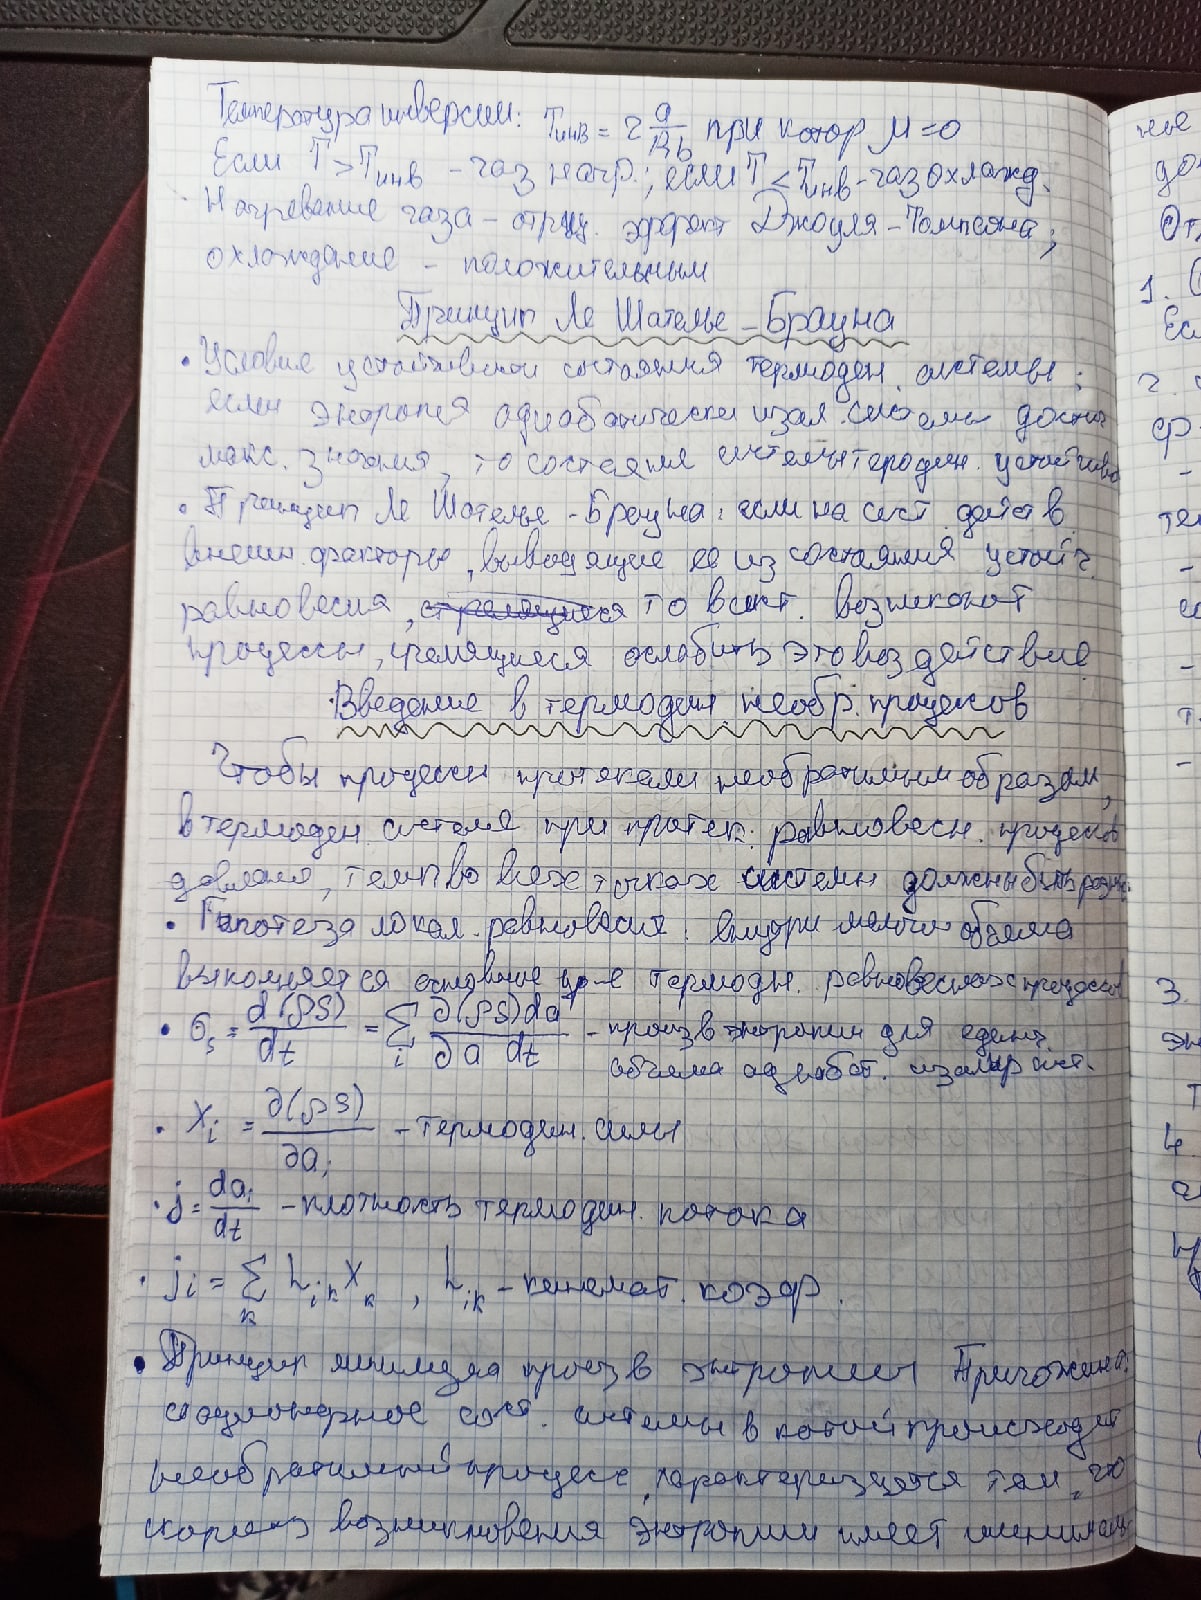 Температура инверсии: Tинв = 2 a/Rb при котор μ=0
Если T > Tинв - газ нагр.; если T < Tинв - газ охлажд.
Нагревание газа - отриц. эффект Джоуля-Томпсона;
охлаждение - положительным
Принцип Ле Шателье-Брауна
• Условие устойчивости состояния термодин. системы:
если энтропия адиабатически изол. системы достиг
макс. значения, то состояние системы термодин. устойчиво
• Принцип Ле Шателье-Брауна: если на сист. действ
внешн. факторы, выводящие ее из состояния устойч.
равновесия, стремящиеся то в сист. возникают
процессы, стремящиеся ослабить это воздействие
Введение в термодин. необр. процессов
Чтобы процессы протекали необратимым образом,
в термодин. системе при протек. равновесн. процессов
давления, темп во всех точках системы должны быть
• Гипотеза локал. равновесия. внутри малого объема
выполняется основное ур-е термодин. равновесных процессов
• σs = d(ρS)/dt = Σi ∂(ρS)da/∂a dt - произв энтропии для единич.
объема адиабат. изолир сист.
• Xi = ∂(ρS)/∂ai - термодин. силы
• j = dai/dt - плотность термодин. потока
• ji = Σk Lik Xk , Lik - кинемат. коэф.
• Принцип минимума произв энтропии Пригожина:
стационарное сост. системы в котой происходит
необратимый процесс, характеризуется тем, что
скорость возникновения энтропии имеет минимальн
нье
От
1.
Ес
2.
-
-
-
-
3.
4.